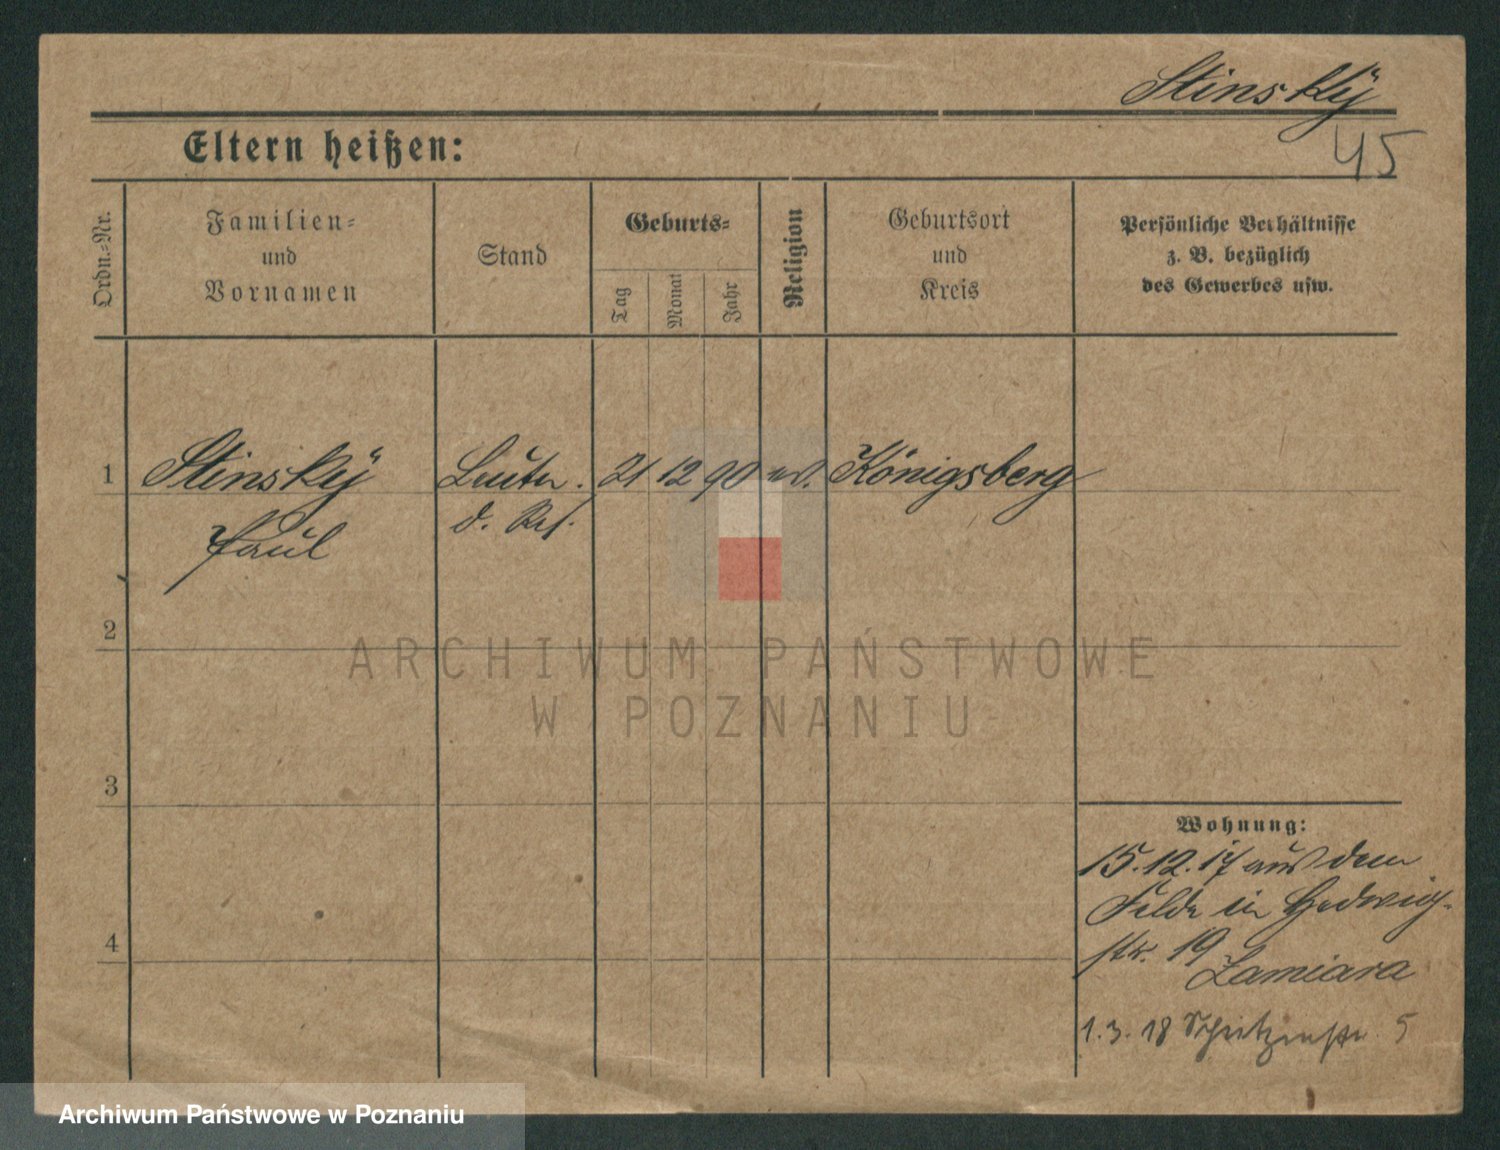 Stinsky
45
Eltern heißen:
Ordn.=Nr.
Familien=
und
Vornamen
Stand
Geburts=
Tag
Monat
Jahr
Religion
Geburtsort
und
Kreis
Persönliche Verhältnisse
z. B. bezüglich
des Gewerbes usw.
1 Stinsky Leutn. 21 12 90 ev. Königsberg
Paul d. Res.
2
ARCHIWUM PAŃSTWOWE
W POZNANIU
3
Wohnung:
15.12.17 aus dem
Felde in Hedwig-
4
str. 19
Zamiara
1.3.18 Schützenstr. 5
Archiwum Państwowe w Poznaniu